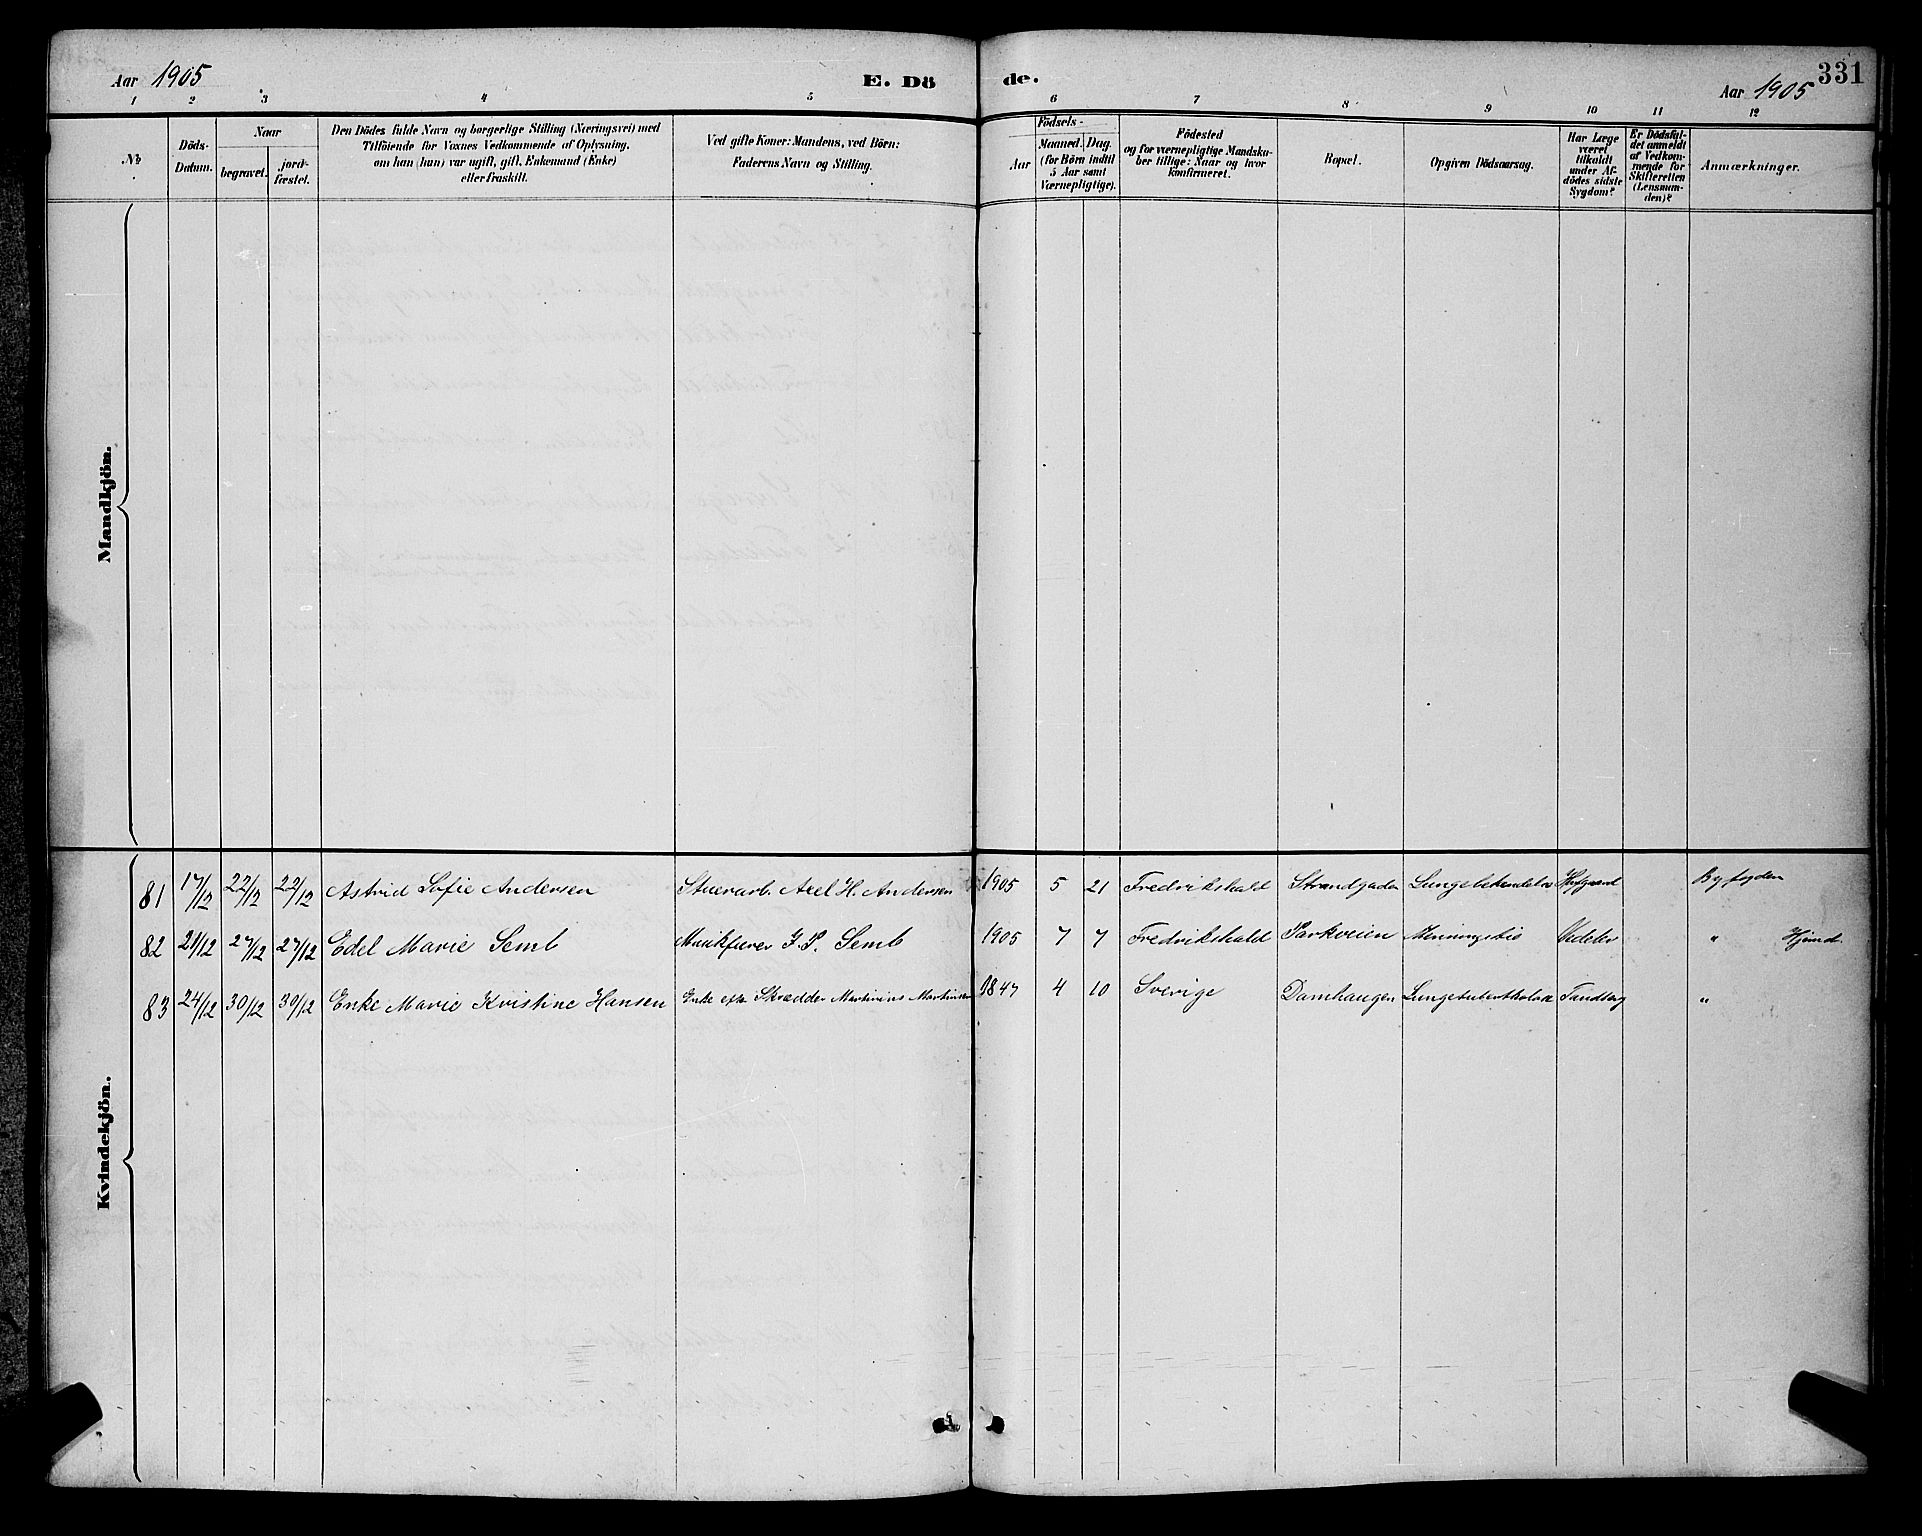 Aar 1905
E. Dö
de.
Aar 1905
331
1 2 3 4 5 6 7 8 9 10 11 12
No
Döds-
Datum.
Naar
begravet.
jord-
fæstet.
Den Dödes fulde Navn og borgerlige Stilling (Næringsvei) med
Tilföiende for Voxnes Vedkommende af Oplysning,
om han (hun) var ugift, gift, Enkemand (Enke)
eller fraskilt.
Ved gifte Koner: Mandens, ved Börn:
Faderens Navn og Stilling.
Födsels-
Aar
Maaned. Dag.
(for Börn indtil
5 Aar samt
Værnepligtige).
Födested
og for værnepligtige Mandska-
ber tillige: Naar og hvor
konfirmeret.
Bopæl.
Opgiven Dödsaarsag.
Har Læge
været
tilkaldt
under Af-
dödes sidste
Sygdom?
Er Dödsfal-
det anmeldt
af Vedkom-
mende for
Skifteretten
(Lensman-
den)?
Anmærkninger.
Mandkjön.
Kvindekjön.
81 17/12 22/12 22/12 Astrid Sofie Andersen Stuerarb. Axel H. Andersen 1905 5 21 Fredrikshald Strandgaden By fogden
82 21/12 27/12 27/12 Edel Marie Semb J. P. Semb 1905 7 7 Fredrikshald Parkveien Vedeler "
83 24/12 30/12 30/12 Enke Marie Kristine Hansen Enke efter Skrædder Martinius Martinsen 1847 4 10 Sverige Damhaugen Tandberg "